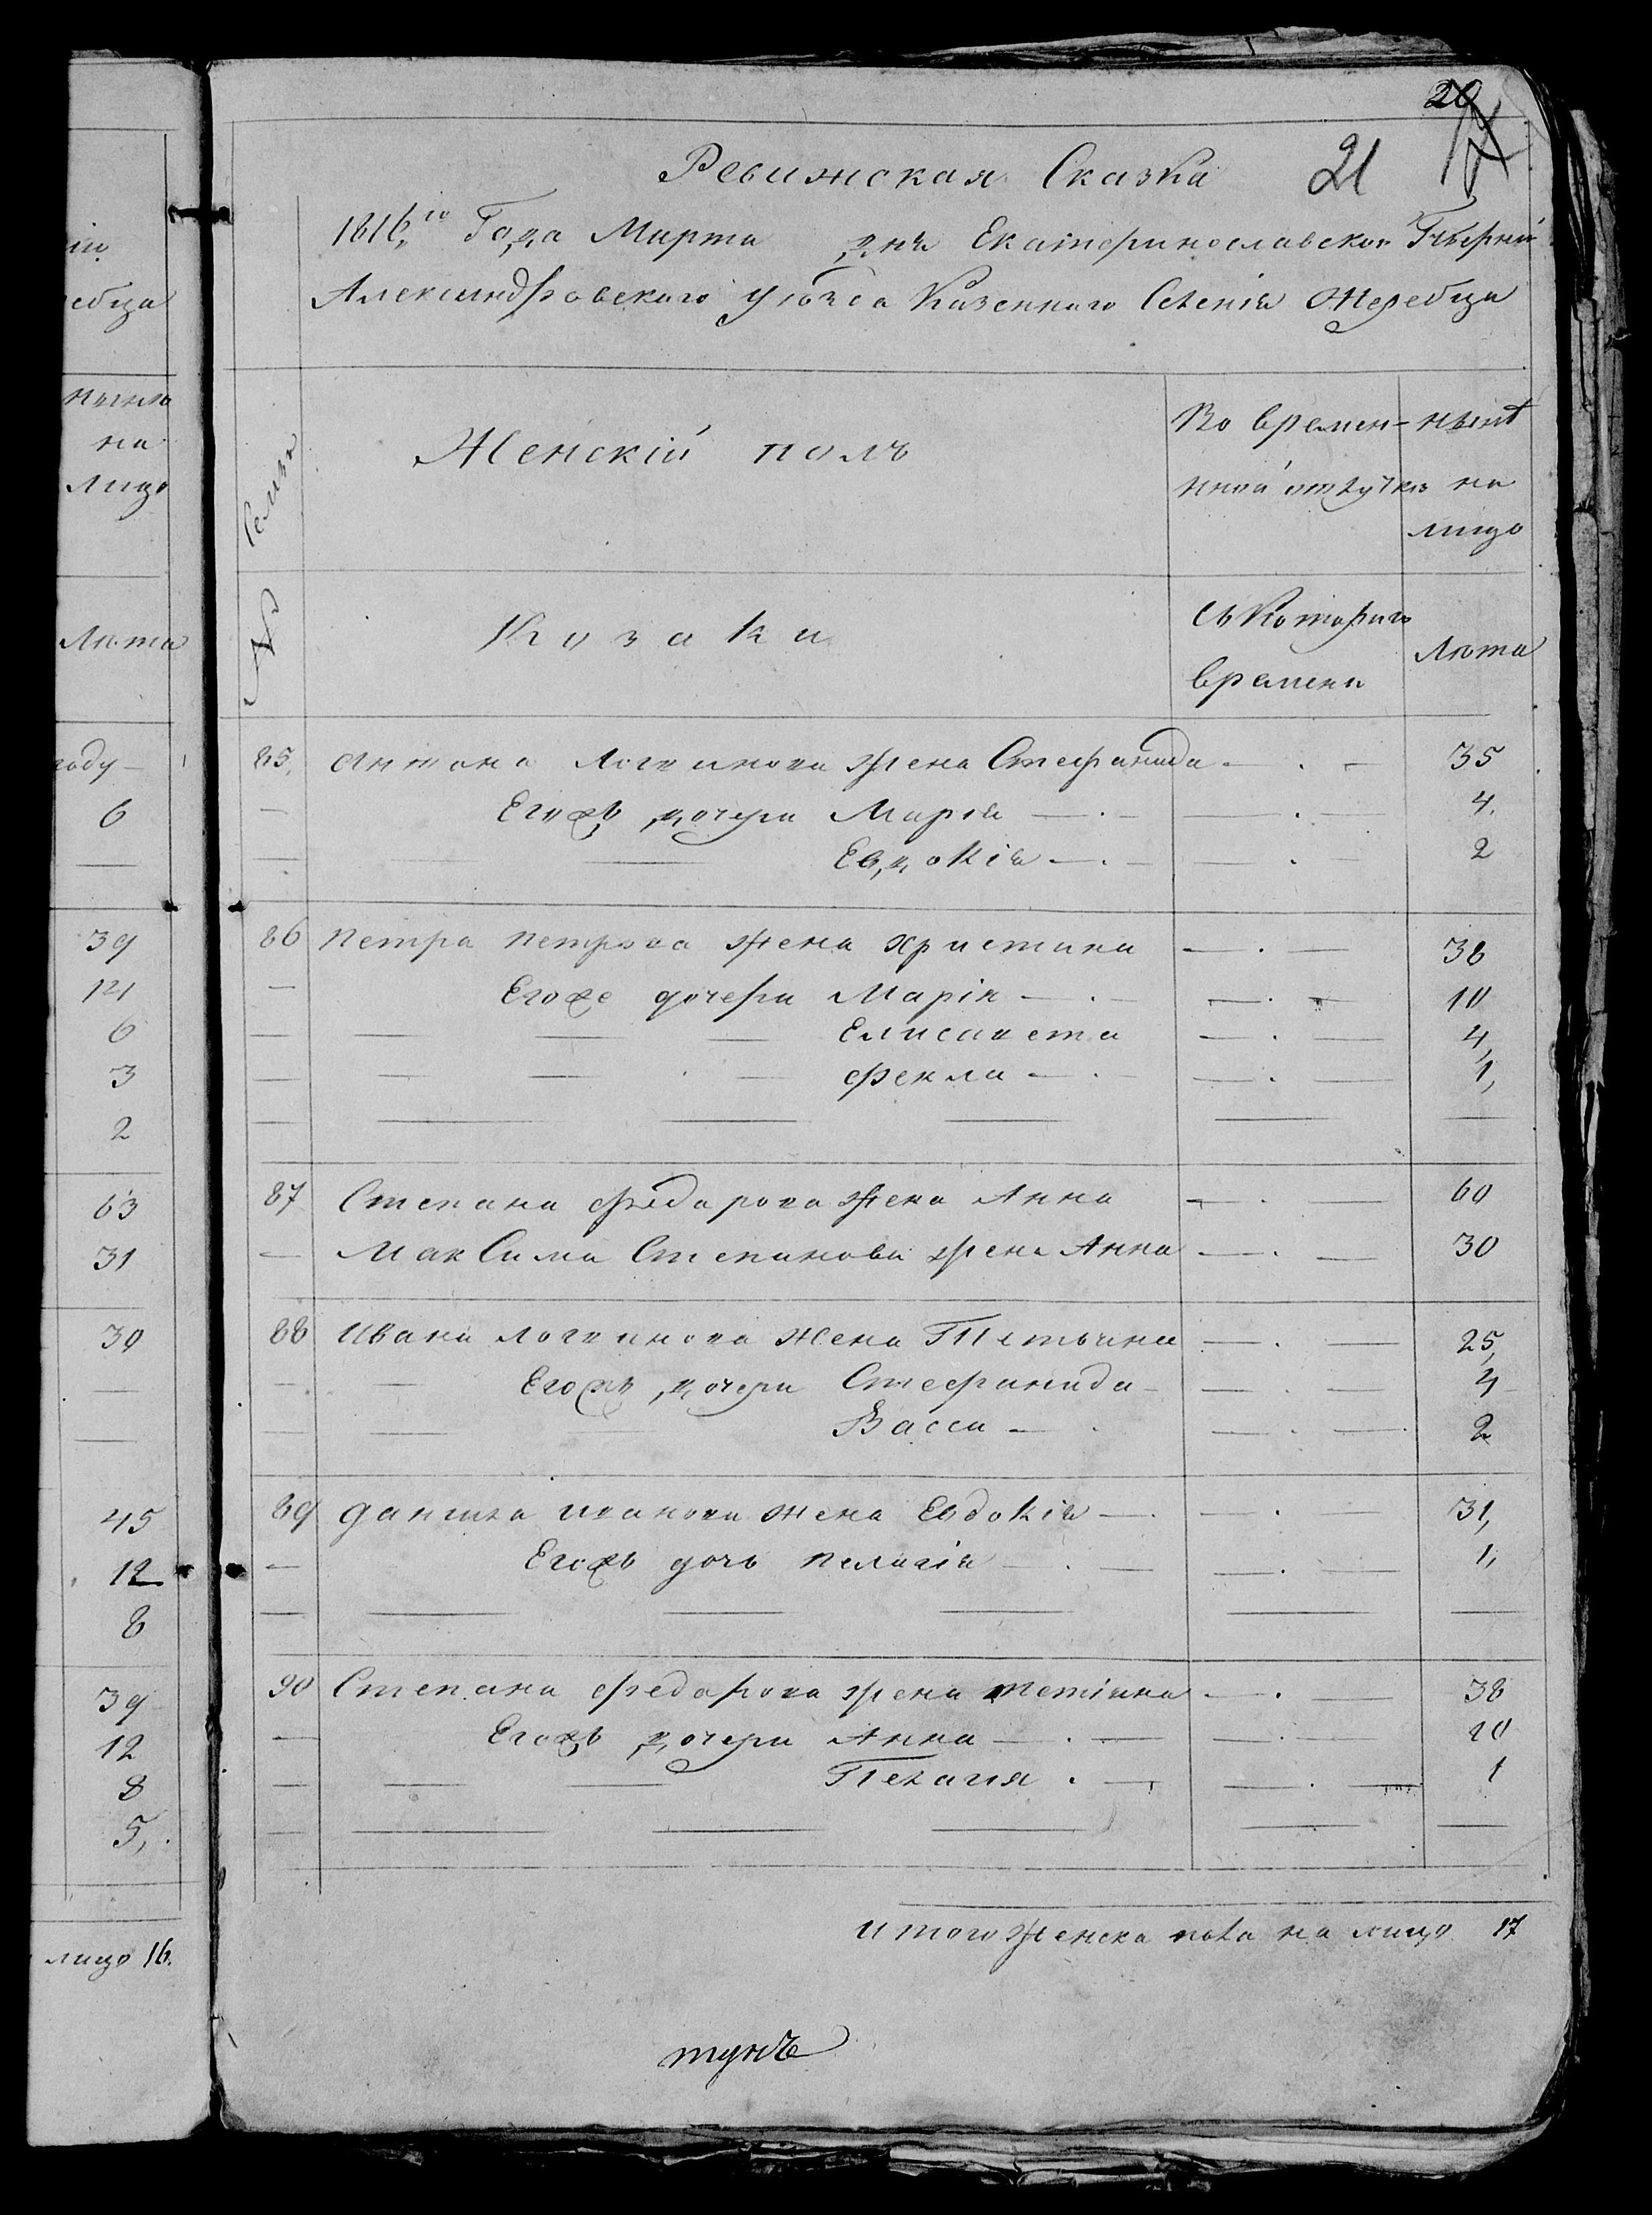 20
21
Ревижская Сказка
1816го Года Марта дня Екатеринославской Губерніи
Александровского уѣзда Казенного Селенія Жеребца
Семьи
№
Женскій полъ
Во времен- нынѣ
нной отлучкѣ на
лицо
Козаки
Съ Котораго
времени
Лѣта
85. Антона Логвинова жена Стефанида — . — 35
— Егожъ дочери Марія — . — 4.
— Евдокія — . — 2
86 Петра Петрова жена Христина — . — 38
— Егоже дочери Марія — . — 10
— Елисавета — . — 4,
— Фекла — . — 1,
87 Степана Федарова жена Анна — . — 60
— МакСима Степанова жена Анна — . — 30
88 Ивана Логвинова жена Тетьяна — . — 25,
— Егожъ дочери Стефанида — . — 4
— Васса — . — 2
89 Данила Иванова жена Евдокія — . — 31,
— Егожъ дочь Пелагія — . — 1,
90 Степана Федарова жена Тетіяна — . — 38
— Егожъ дочери Анна — . — 20
— Пелагия . — 1
итого женска пола на лицо 17
ебца
на
лицо
Лѣта
году
6
39
121
6
3
2
63
31
30
45
12
8
39
12
8
5,
лицо 16.